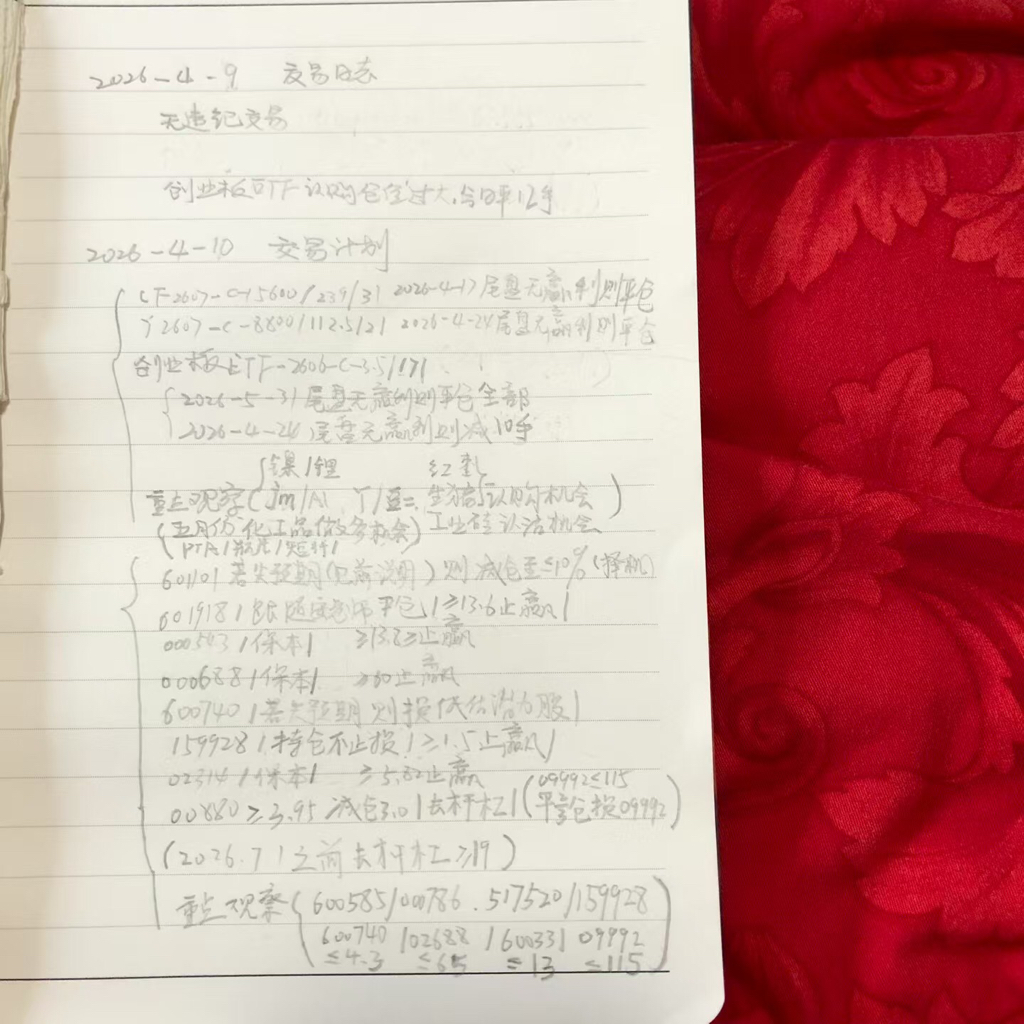 2026-4-9 交易日志
无违纪交易
创业板ETF认购仓位过大，今日平12手
2026-4-10 交易计划
CF2607-C-15600/239/31 2026-4-17尾盘无赢利则平仓
Y2607-C-8800/112.5/21 2026-4-24尾盘无赢利则平仓
创业板ETF-2606-C-3.5/171
2026-5-31尾盘无赢利则平仓全部
2026-4-24尾盘无赢利则减10手
镍/锂 红枣
重点观察(Jm/Al Y/豆二 生猪 认购机会)
(五月份化工品做多机会) 工业硅认沽机会
(PTA/ /短纤/
601101若失预期(电前说明)则减仓至≤10%(择机)
601918/ 平仓/≥13.6止赢/
000543/保本/ ≥13.8止赢
000688/保本/ ≥60止赢
600740/若失预期则换低估潜力股/
159928/持仓不止损/≥1.5止赢/
02314/保本/ ≥5.82止赢 (09992≤115
00880≥3.95减仓3.0/去杠杆/ 平 仓换09992)
(2026.7.1之前去杠杆≥19)
重点观察(600585/000786.517520/159928
600740/02688/600331 09992
≤4.3 ≤65 ≤13 ≤115)